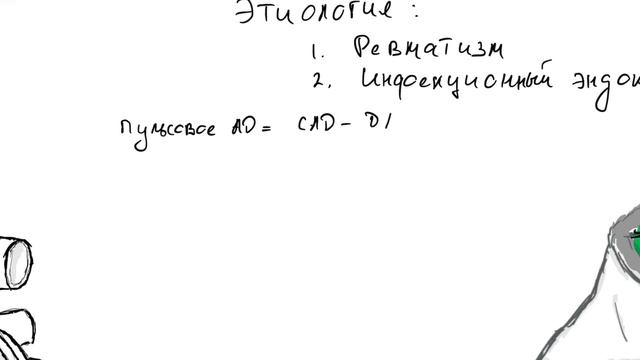 Этиология:
1. Ревматизм
2. Инфекционный эндок
Пульсовое AD = CAD -